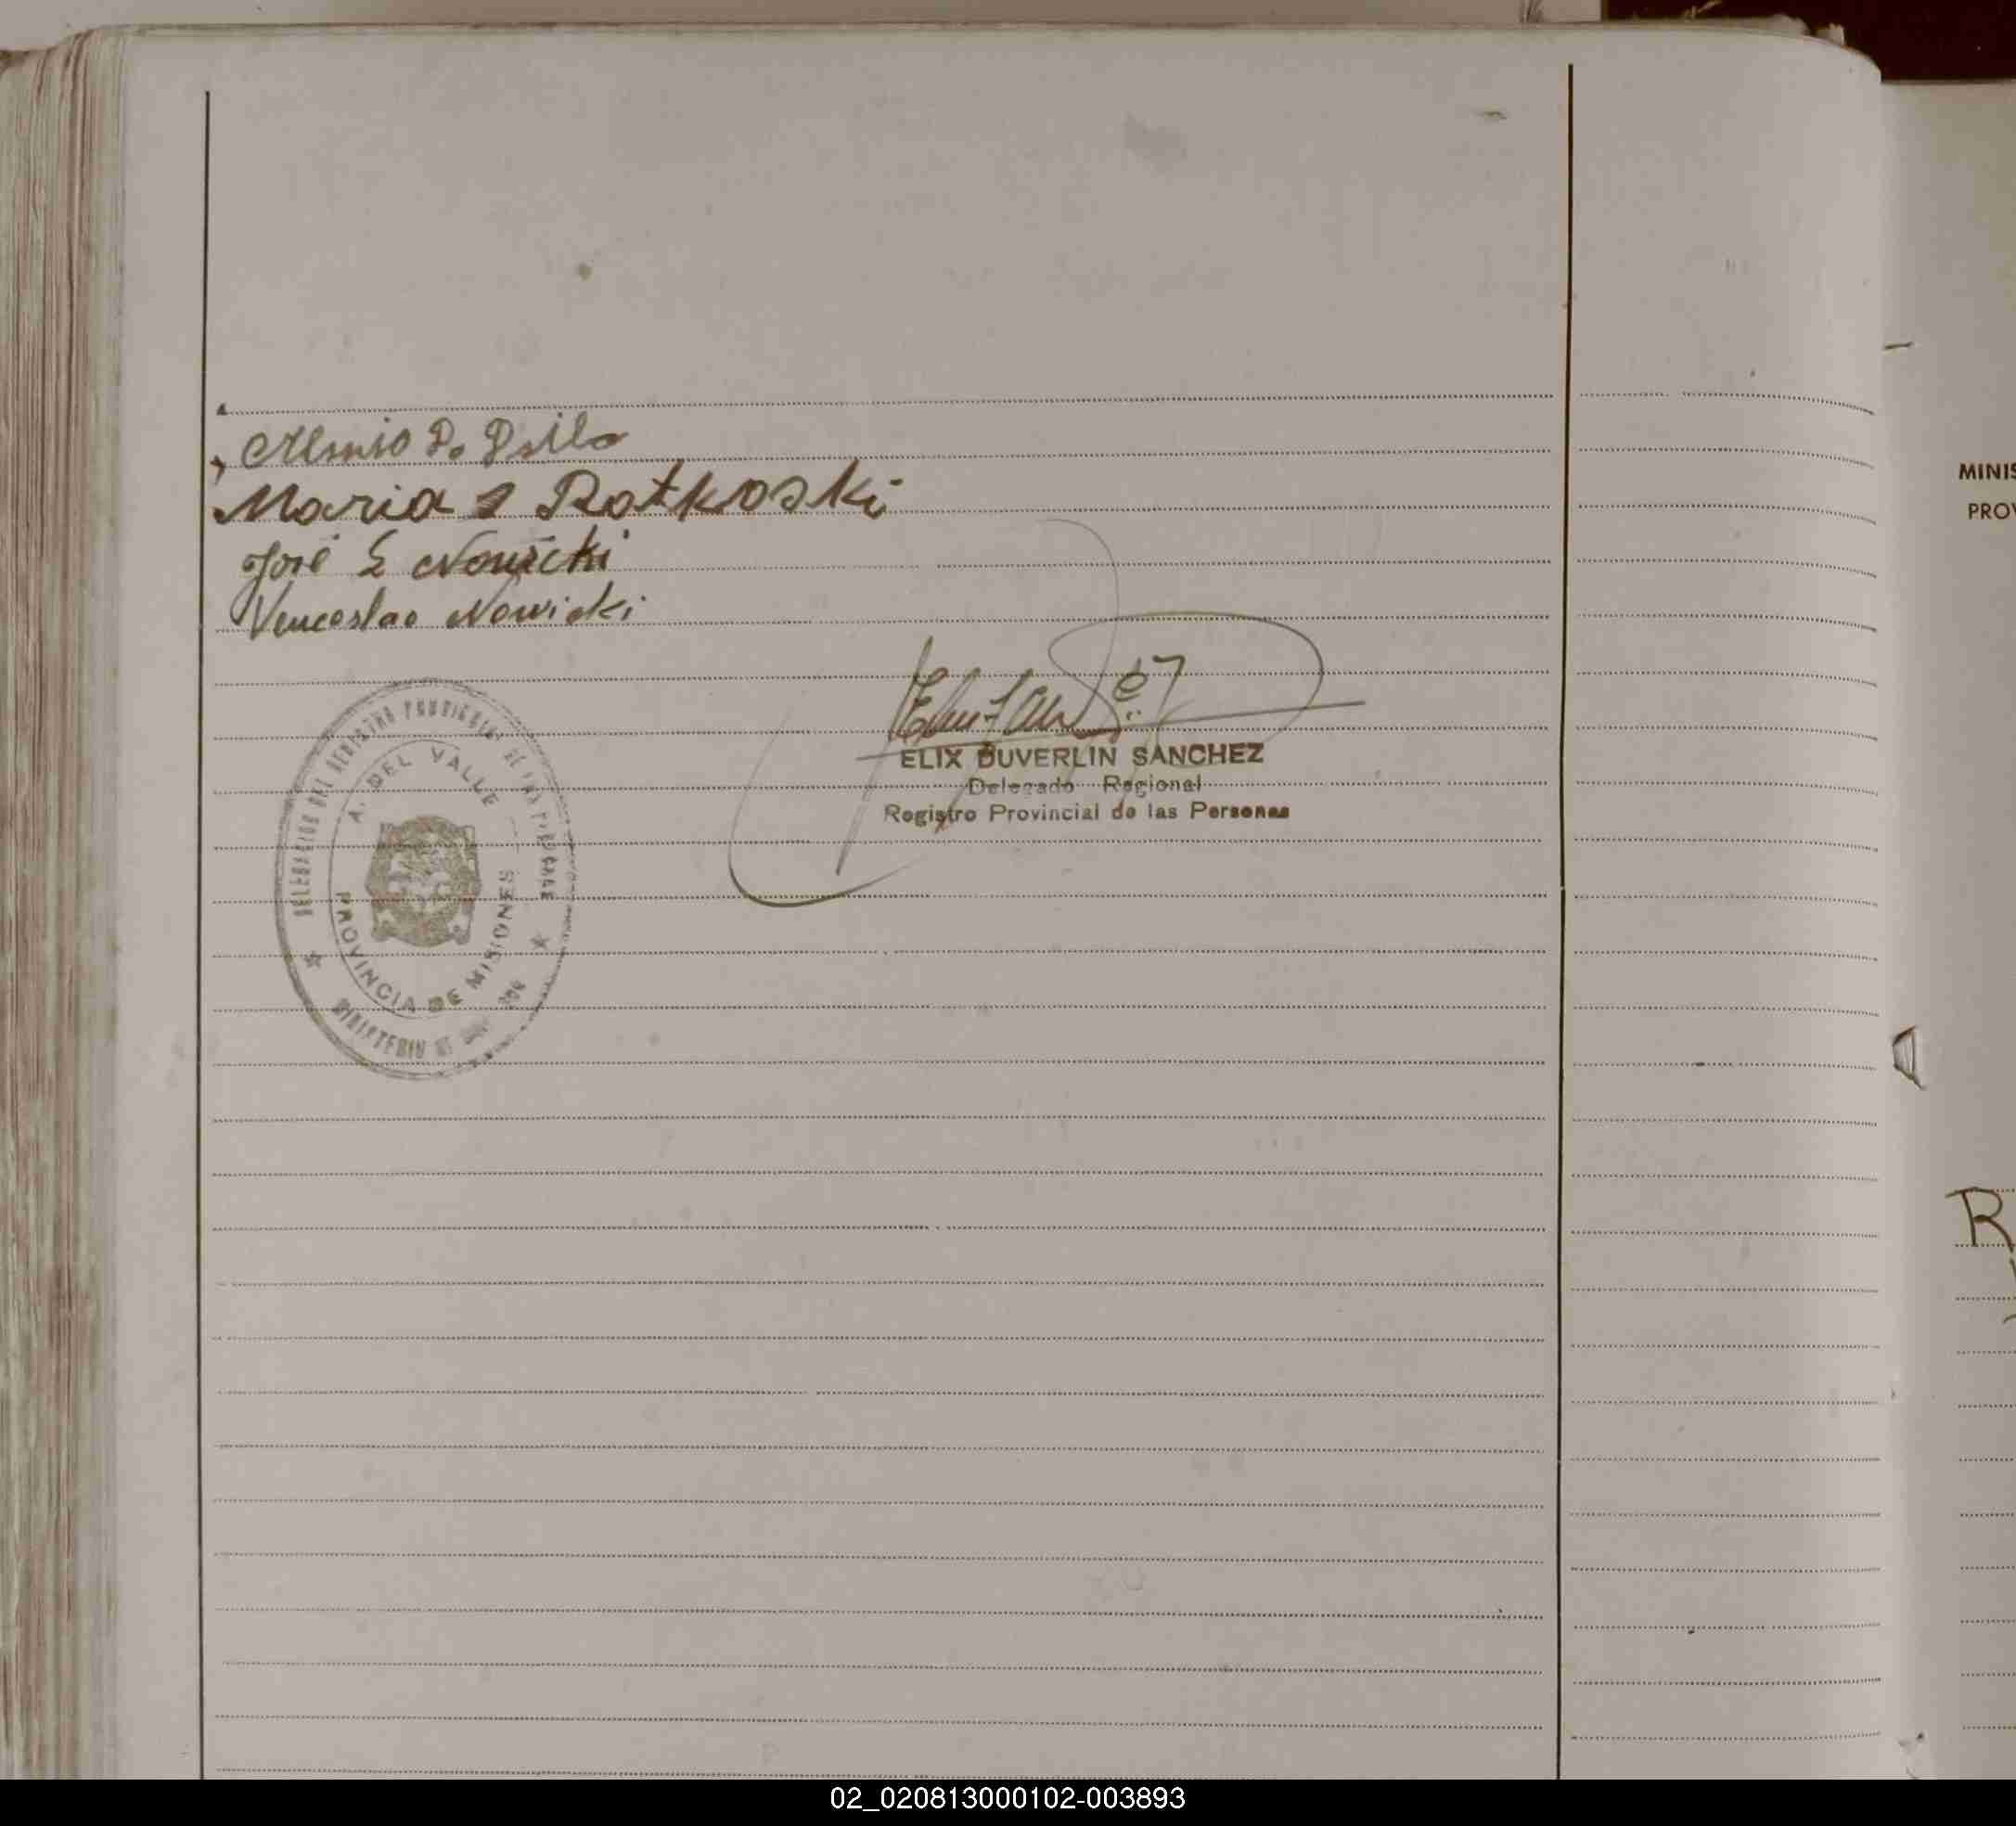 Maria S Rotkoski
José E Nowicki
Venceslao Nowicki
ELIX DUVERLIN SANCHEZ
Delegado Regional
Registro Provincial de las Personas
DELEGACION DEL REGISTRO PROVINCIAL DE LAS PERSONAS
A. DEL VALLE
PROVINCIA DE MISIONES
MINISTERIO DE
MINIS
PROV
R
02_020813000102-003893